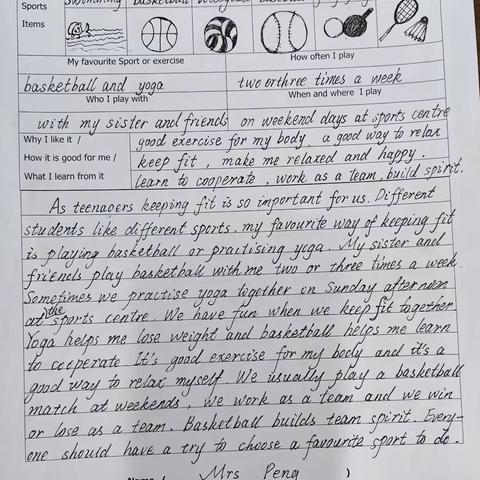 Sports swimming basketball volleyball baseball
Items
My favourite Sport or exercise How often I play
basketball and yoga two orthree times a week
Who I play with When and where I play
with my sister and friends on weekend days at sports centre
Why I like it / good exercise for my body a good way to relax
How it is good for me / keep fit, make me relaxed and happy.
What I learn from it learn to cooperate, work as a team, build spirit.
As teenagers keeping fit is so important for us. Different
students like different sports, my favourite way of keeping fit
is playing basketball or practising yoga. My sister and
friends play basketball with me two or three times a week.
Sometimes we practise yoga together on Sunday afternoon
at the sports centre. We have fun when we keep fit together.
Yoga helps me lose weight and basketball helps me learn
to cooperate. It's good exercise for my body and it's a
good way to relax myself. We usually play a basketball
match at weekends, we work as a team and we win
or lose as a team. Basketball builds team spirit. Every-
one should have a try to choose a favourite sport to do.
Name ( Mrs Peng )